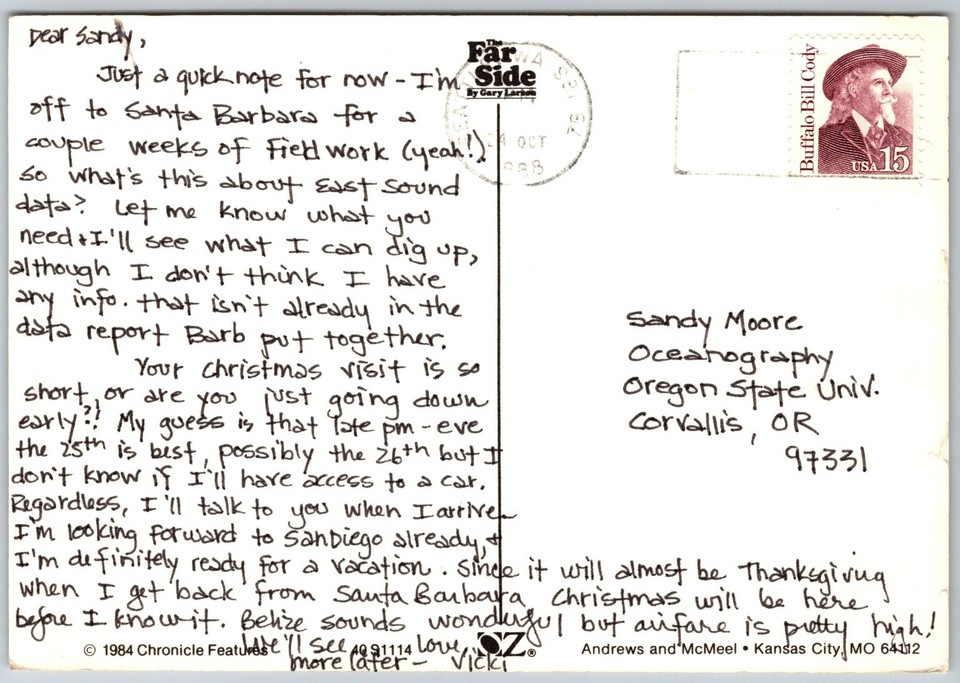 Dear Sandy,
Just a quick note for now - I'm
off to Santa Barbara for a
couple weeks of Field work (yeah!).
So what's this about East Sound
data? Let me know what you
need & I'll see what I can dig up,
although I don't think I have
any info. that isn't already in the
data report Barb put together.
Your Christmas visit is so
short, or are you just going down
early?! My guess is that late pm - eve
the 25th is best, possibly the 26th but I
don't know if I'll have access to a car.
Regardless, I'll talk to you when I arrive.
I'm looking forward to San Diego already, &
I'm definitely ready for a vacation. Since it will almost be Thanksgiving
when I get back from Santa Barbara, Christmas will be here
before I know it. Belize sounds wonderful but airfare is pretty high!
We'll see love,
more later - Vicki
The
Far
Side
By Gary Larson
WA 981
24 OCT
1988
Buffalo Bill Cody
USA 15
Sandy Moore
Oceanography
Oregon State Univ.
Corvallis, OR
97331
© 1984 Chronicle Features 40 91114 OZ®
Andrews and McMeel • Kansas City, MO 64112